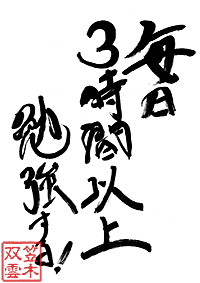 毎日
3時間以上
勉強する!
笠木
双雲